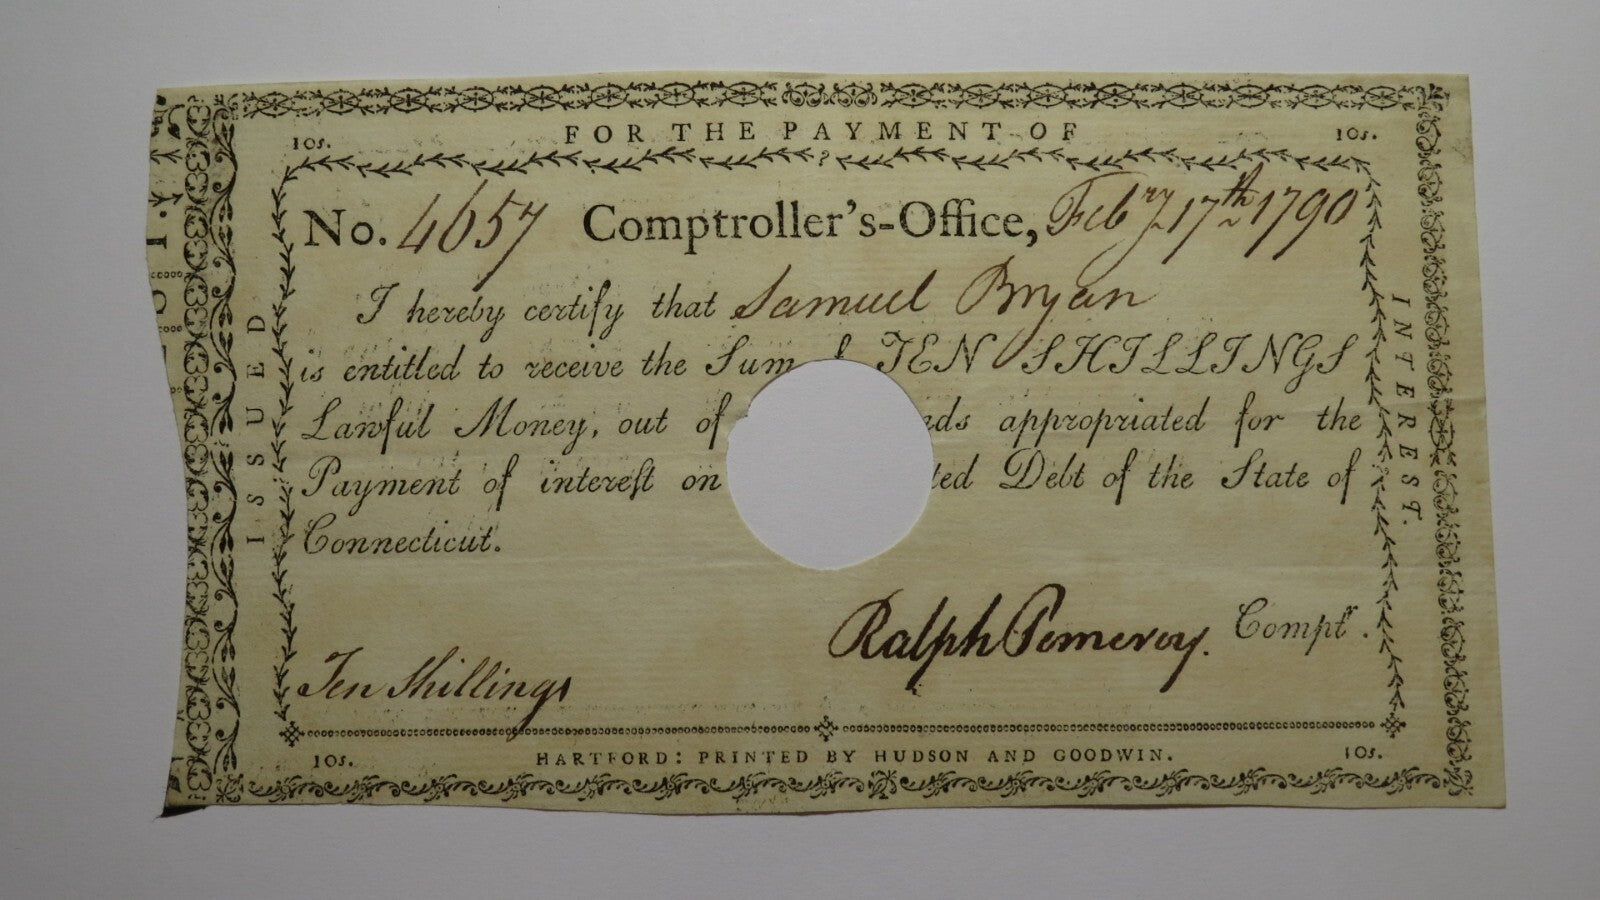 FOR THE PAYMENT OF
10s. 10s.
No. 4657 Comptroller's-Office, Febry 17th 1790
I hereby certify that Samuel Bryan
is entitled to receive the Sum of TEN SHILLINGS
Lawful Money, out of nds appropriated for the
Payment of intereſt on ted Debt of the State of
Connecticut.
Ralph Pomeroy. Comptr.
Ten Shillings
10s. HARTFORD: PRINTED BY HUDSON AND GOODWIN. 10s.
ISSUED
INTEREST.